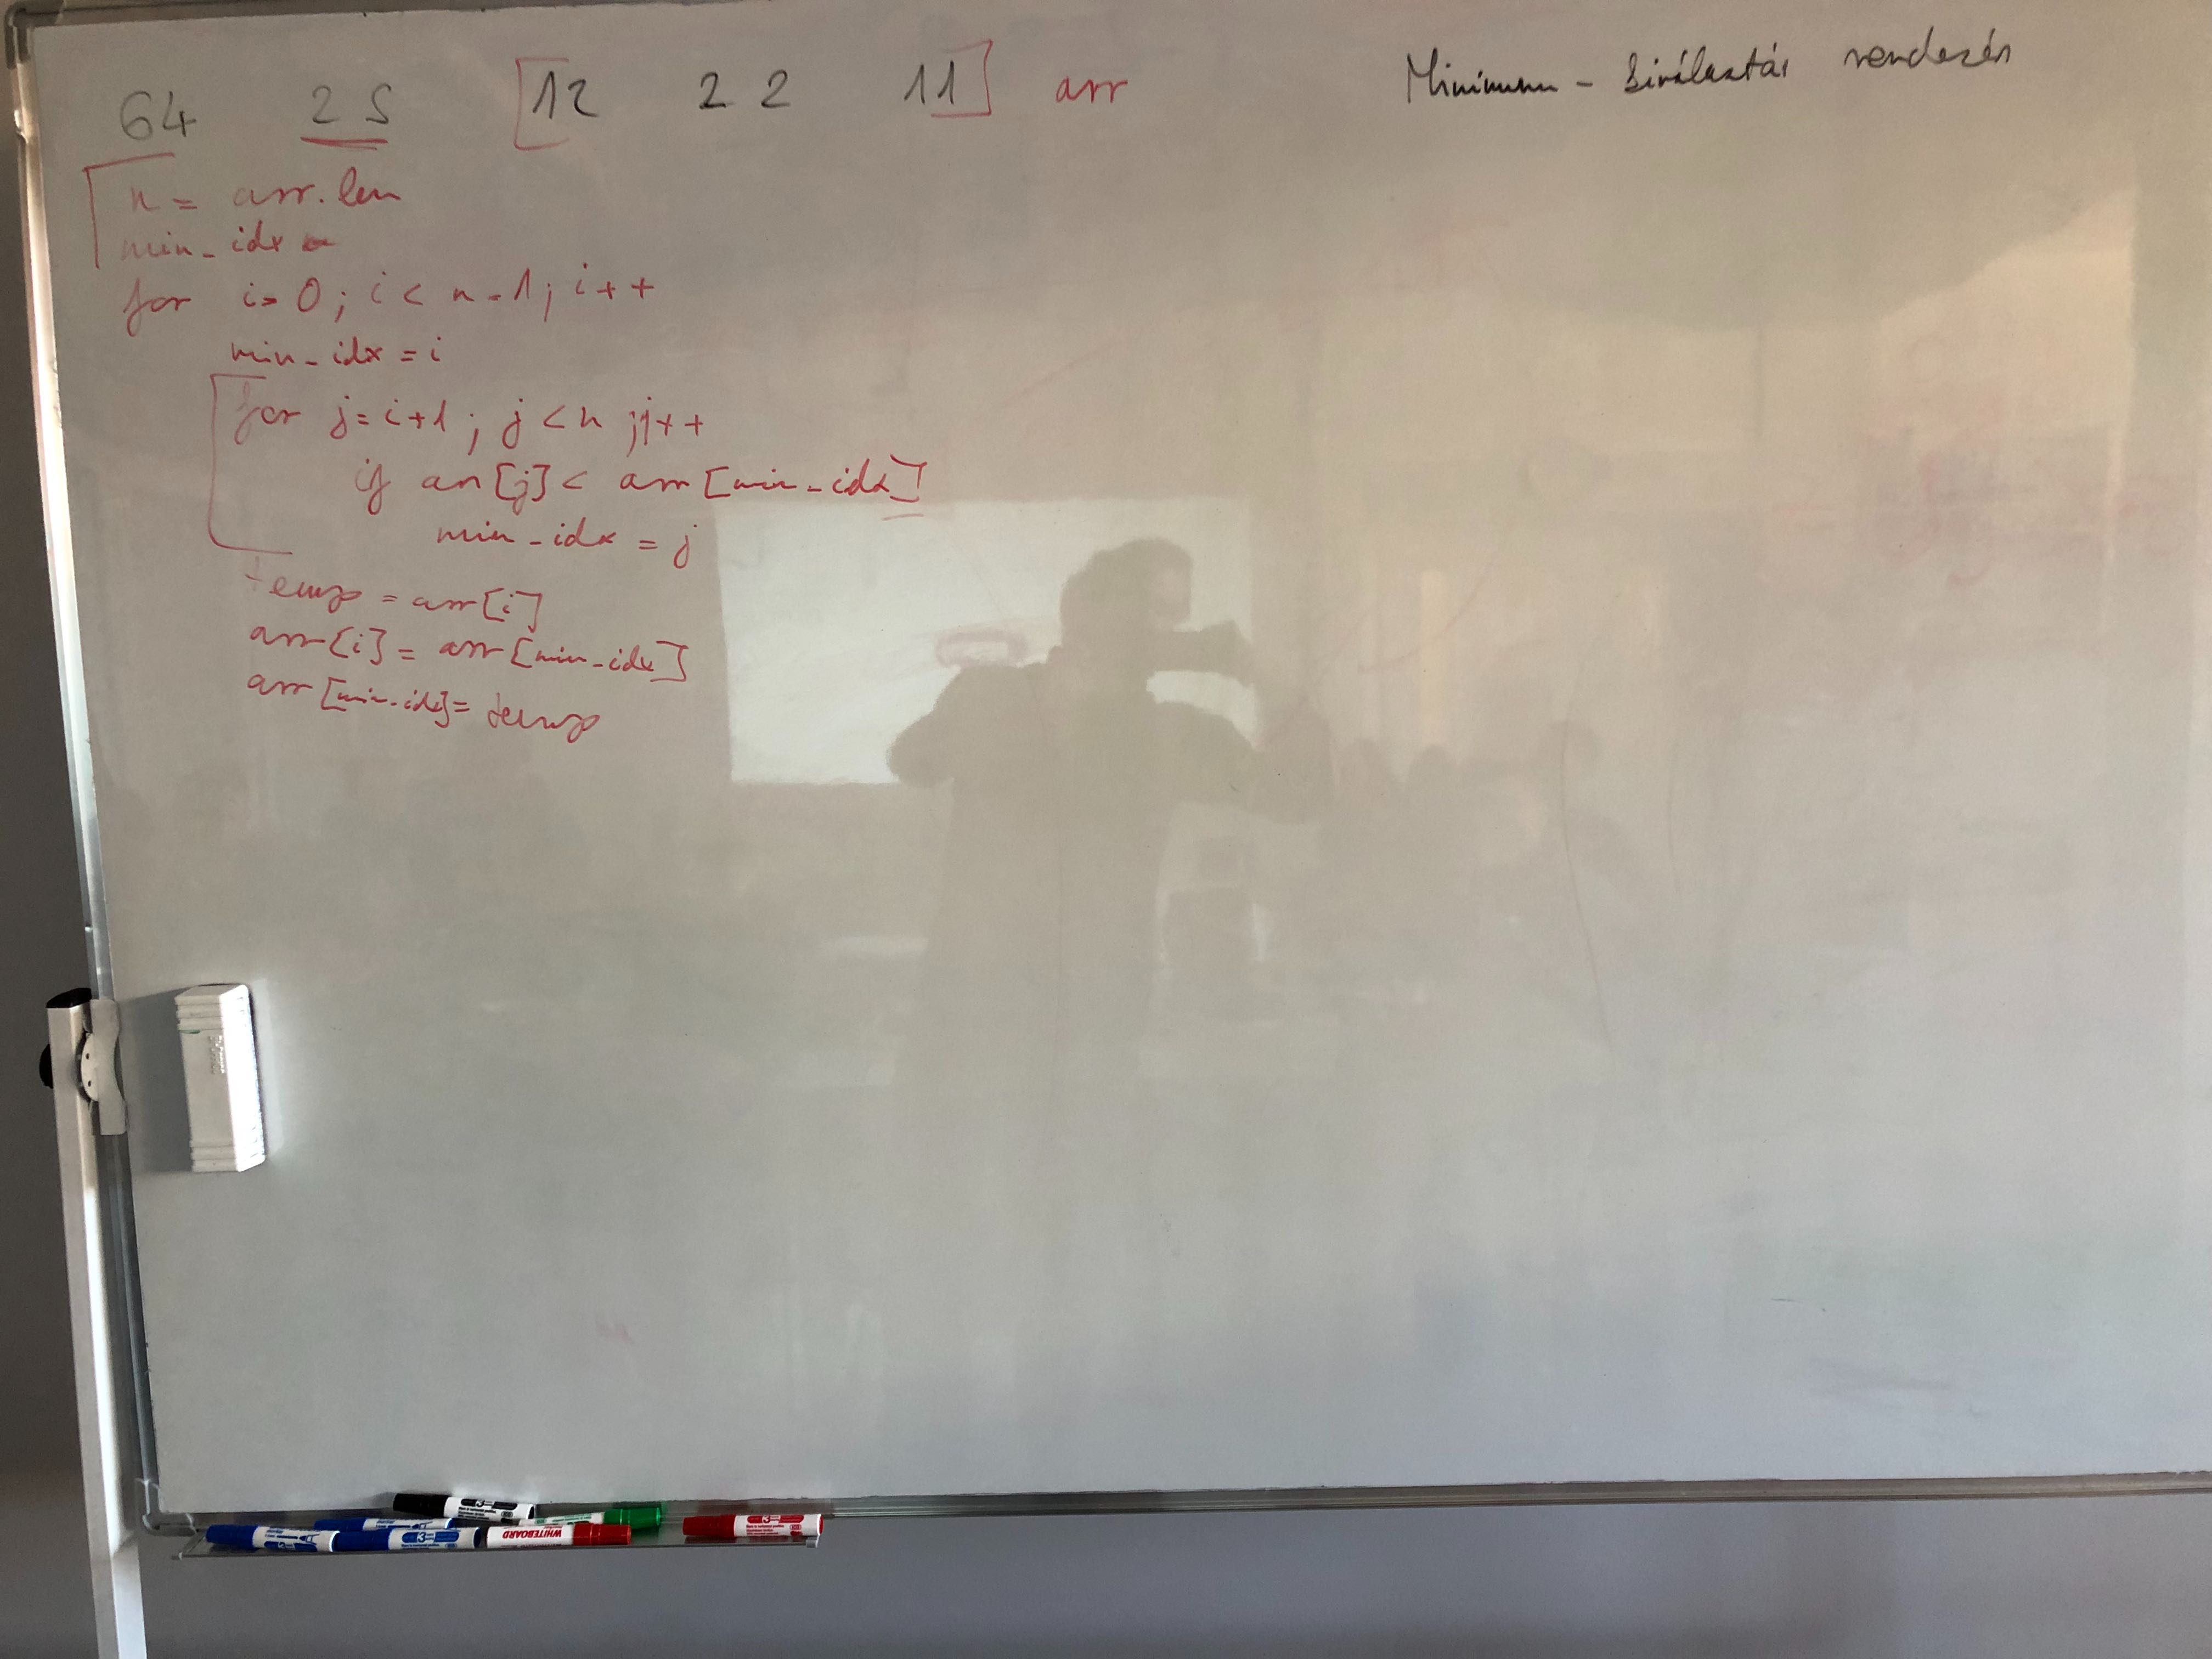 64 25 [12 22 11] arr
Minimum - kiválasztás rendezés
n = arr.len
min_idx
for i=0; i < n-1; i++
min_idx = i
for j=i+1; j<n ;j++
if arr[j] < arr[min_idx]
min_idx = j
temp = arr[i]
arr[i] = arr[min_idx]
arr[min_idx] = temp
WHITEBOARD